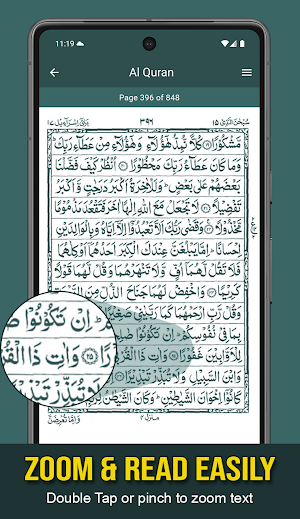 11:19
Al Quran
Page 396 of 848
بنی اسرآءیل ۱۷
۳۹۶
سبحٰن الذی ۱۵
مَّشْكُوْرًا كُلًّا نُّمِدُّ هٰۤؤُلَآءِ وَ هٰۤؤُلَآءِ مِنْ عَطَآءِ رَبِّكَ
وَمَا كَانَ عَطَآءُ رَبِّكَ مَحْظُوْرًا اُنْظُرْ كَیْفَ فَضَّلْنَا
بَعْضَهُمْ عَلٰی بَعْضٍ وَلَلْاٰخِرَةُ اَكْبَرُ دَرَجٰتٍ وَّ اَكْبَرُ
تَفْضِیْلًا لَا تَجْعَلْ مَعَ اللّٰهِ اِلٰهًا اٰخَرَ فَتَقْعُدَ مَذْمُوْمًا
مَّخْذُوْلًا وَقَضٰی رَبُّكَ اَلَّا تَعْبُدُوْۤا اِلَّاۤ اِیَّاهُ وَبِالْوَالِدَیْنِ
اِحْسَانًا اِمَّا یَبْلُغَنَّ عِنْدَكَ الْكِبَرَ اَحَدُهُمَاۤ اَوْ كِلٰهُمَا
فَلَا تَقُلْ لَّهُمَاۤ اُفٍّ وَّلَا تَنْهَرْهُمَا وَقُلْ لَّهُمَا قَوْلًا
كَرِیْمًا وَاخْفِضْ لَهُمَا جَنَاحَ الذُّلِّ مِنَ الرَّحْمَةِ
وَقُلْ رَّبِّ ارْحَمْهُمَا كَمَا رَبَّیٰنِیْ صَغِیْرًا
بِمَا فِیْ نُفُوْسِكُمْ اِنْ تَكُوْنُوْا
لِلْاَوَّابِیْنَ غَفُوْرًا وَاٰتِ ذَا الْقُرْبٰی
وَابْنَ السَّبِیْلِ وَلَا تُبَذِّرْ تَبْذِیْرًا
كَانُوْۤا اِخْوَانَ الشَّیٰطِیْنِ وَكَانَ الشَّیْطٰنُ
وَاِمَّا تُعْرِضَنَّ
منزل ۴
ZOOM & READ EASILY
Double Tap or pinch to zoom text